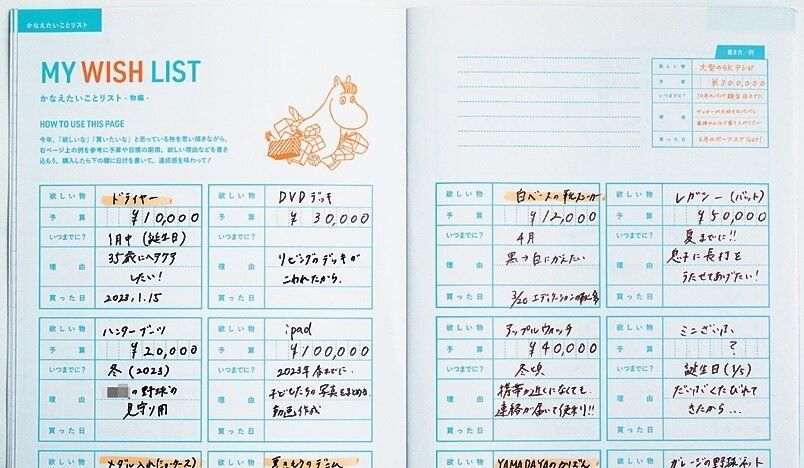 かなえたいことリスト
MY WISH LIST
かなえたいことリスト - 物編 -
HOW TO USE THIS PAGE
今年、「欲しいな」「買いたいな」と思っている物を思い描きながら、
右ページ上の例を参考に予算や目標の期限、欲しい理由などを書き
込もう。購入したら下の欄に日付を書いて、達成感を味わって！
欲しい物 ドライヤー
予算 ¥10,000
いつまでに? 1月中 (誕生日)
理由 35歳にヘアケア
したい!
買った日 2023.1.15
欲しい物 DVDデッキ
予算 ¥30,000
いつまでに?
理由 リビングのデッキが
こわれたから.
買った日
欲しい物 ハンターブーツ
予算 ¥20,000
いつまでに? 冬 (2023)
理由 の野球の
見守り用
買った日
欲しい物 ipad
予算 ¥100,000
いつまでに? 2023年春までに.
理由 子どもたちの写真をまとめる.
動画作成
買った日
書き方/例
欲しい物 大型の4Kテレビ
予算 ¥300,000
いつまでに? 10月のパパの誕生日までに
理由 サッカーが大好きなパパと
家族みんなで盛り上がりたい
買った日 6月のボーナスでGet!
欲しい物 白ベースの靴
予算 ¥12,000
いつまでに? 4月
理由 黒→白にかえたい
買った日 3/20
欲しい物 レガシー (バット)
予算 ¥50,000
いつまでに? 夏までに!!
理由 息子に長打を
うたせてあげたい!
買った日
欲しい物 アップルウォッチ
予算 ¥40,000
いつまでに? 冬頃
理由 携帯が近くになくても
連絡が届いて便利!!
買った日
欲しい物 ミニざいふ
予算 ?
いつまでに? 誕生日 (1/5)
理由 だいぶくたびれて
きたから...
買った日
欲しい物
欲しい物
欲しい物 YAMADAYAのかばん
欲しい物 ガレージの野球ネット